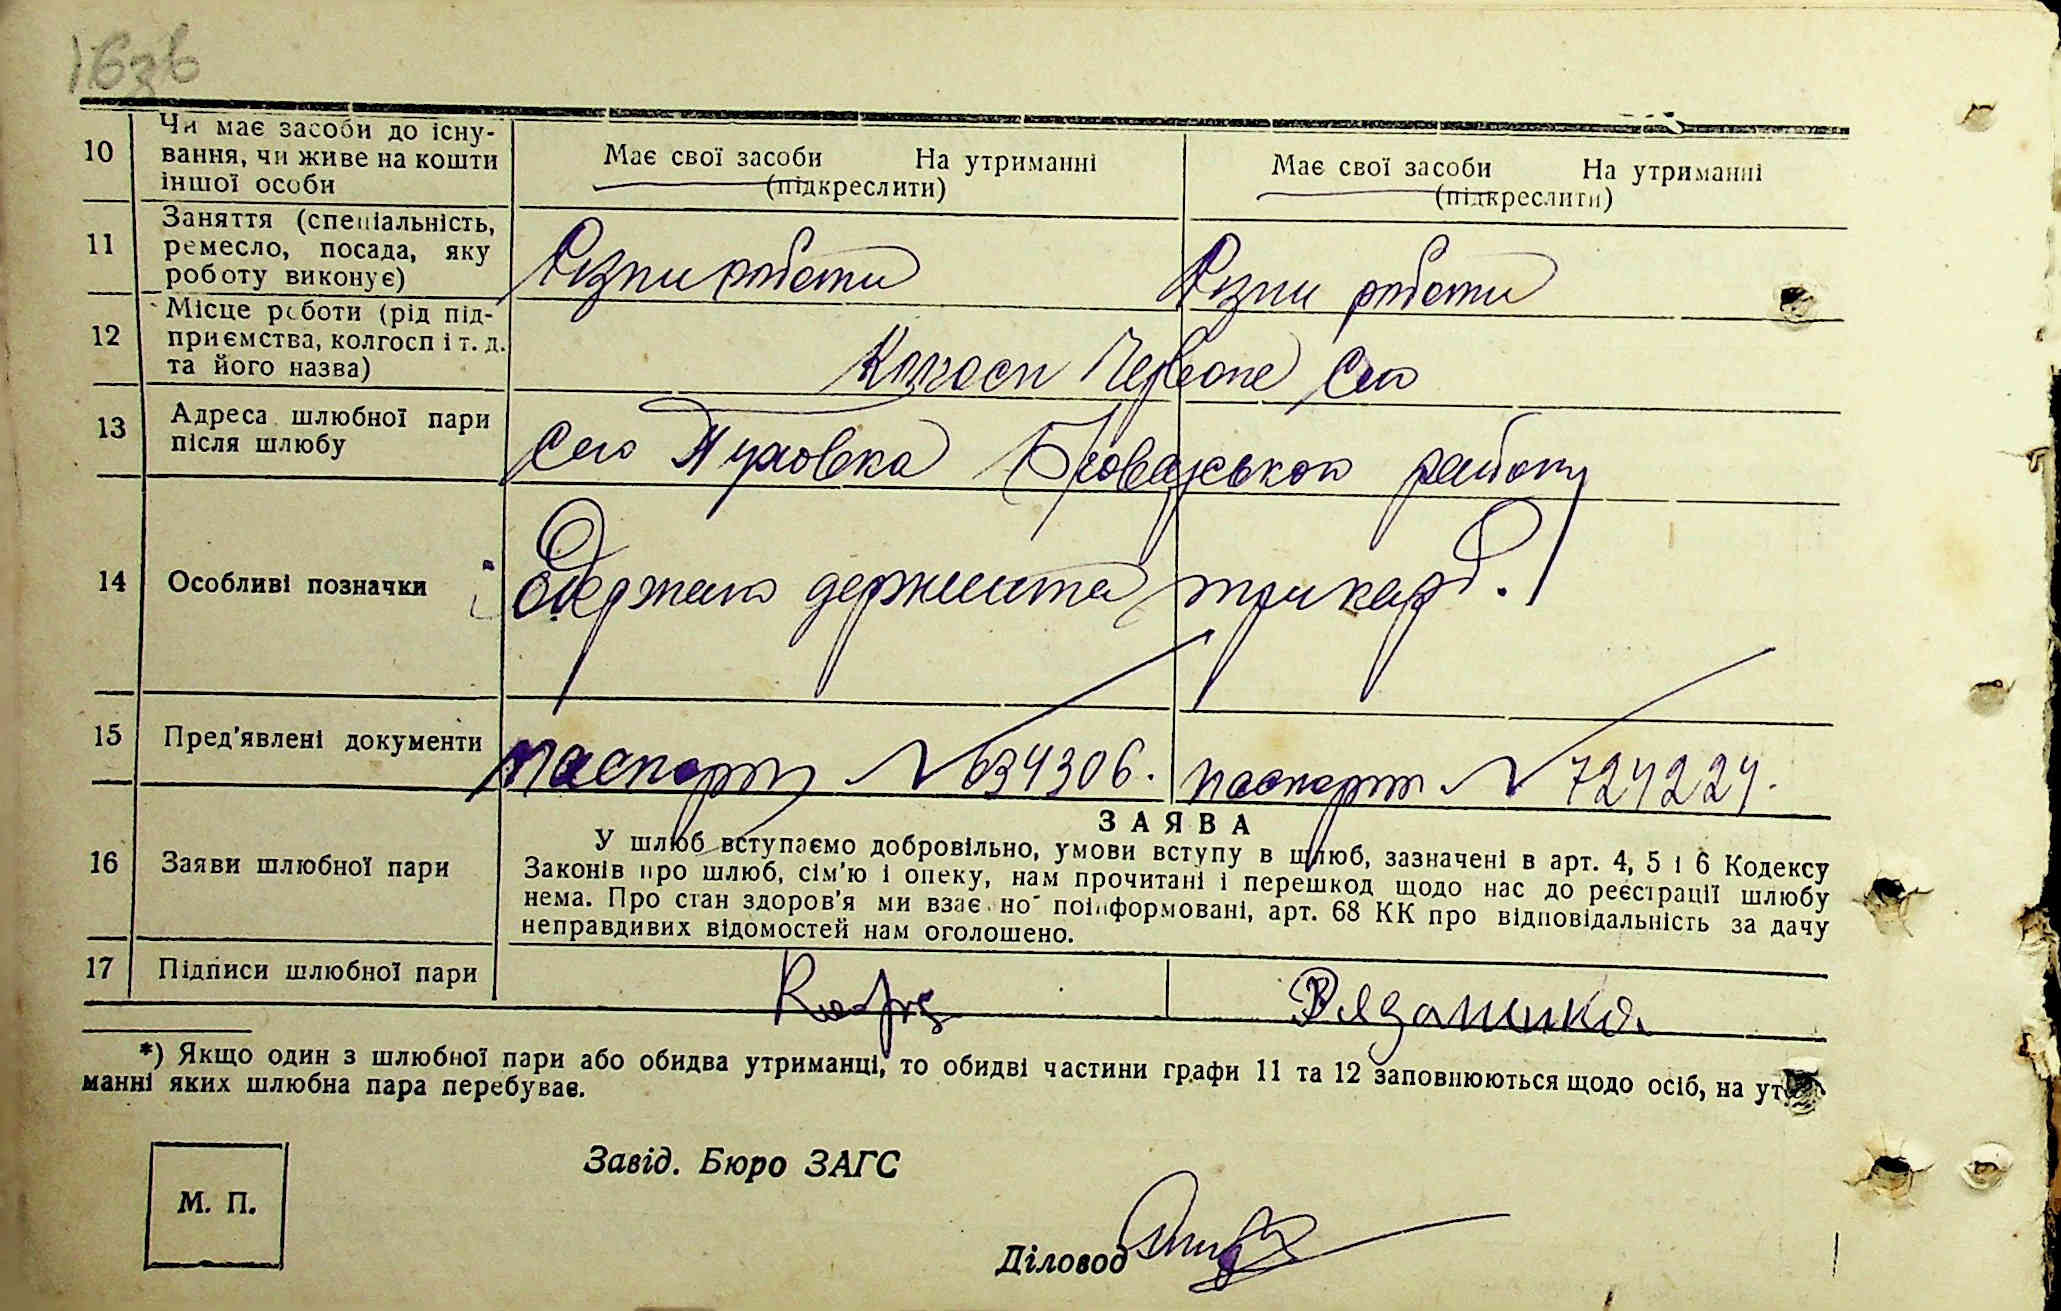 163б
10 Чи має засоби до існу-
вання, чи живе на кошти
іншої особи
Має свої засоби На утриманні
(підкреслити)
Має свої засоби На утриманні
(підкреслити)
11 Заняття (спеціальність,
ремесло, посада, яку
роботу виконує)
Різни роботи
Різни роботи
12 Місце роботи (рід під-
приємства, колгосп і т. д.
та його назва)
Колгосп Червоне Село
13 Адреса шлюбної пари
після шлюбу
село Пуховка Броварського району
14 Особливі позначки
Одержано держмита три карб.
15 Пред'явлені документи
паспорт № 634306.
паспорт № 724224.
16 Заяви шлюбної пари
ЗАЯВА
У шлюб вступаємо добровільно, умови вступу в шлюб, зазначені в арт. 4, 5 і 6 Кодексу
Законів про шлюб, сім'ю і опеку, нам прочитані і перешкод щодо нас до реєстрації шлюбу
нема. Про стан здоров'я ми взаємно поінформовані, арт. 68 КК про відповідальність за дачу
неправдивих відомостей нам оголошено.
17 Підписи шлюбної пари
*) Якщо один з шлюбної пари або обидва утриманці, то обидві частини графи 11 та 12 заповнюються щодо осіб, на ут
манні яких шлюбна пара перебуває.
Завід. Бюро ЗАГС
М. П.
Діловод